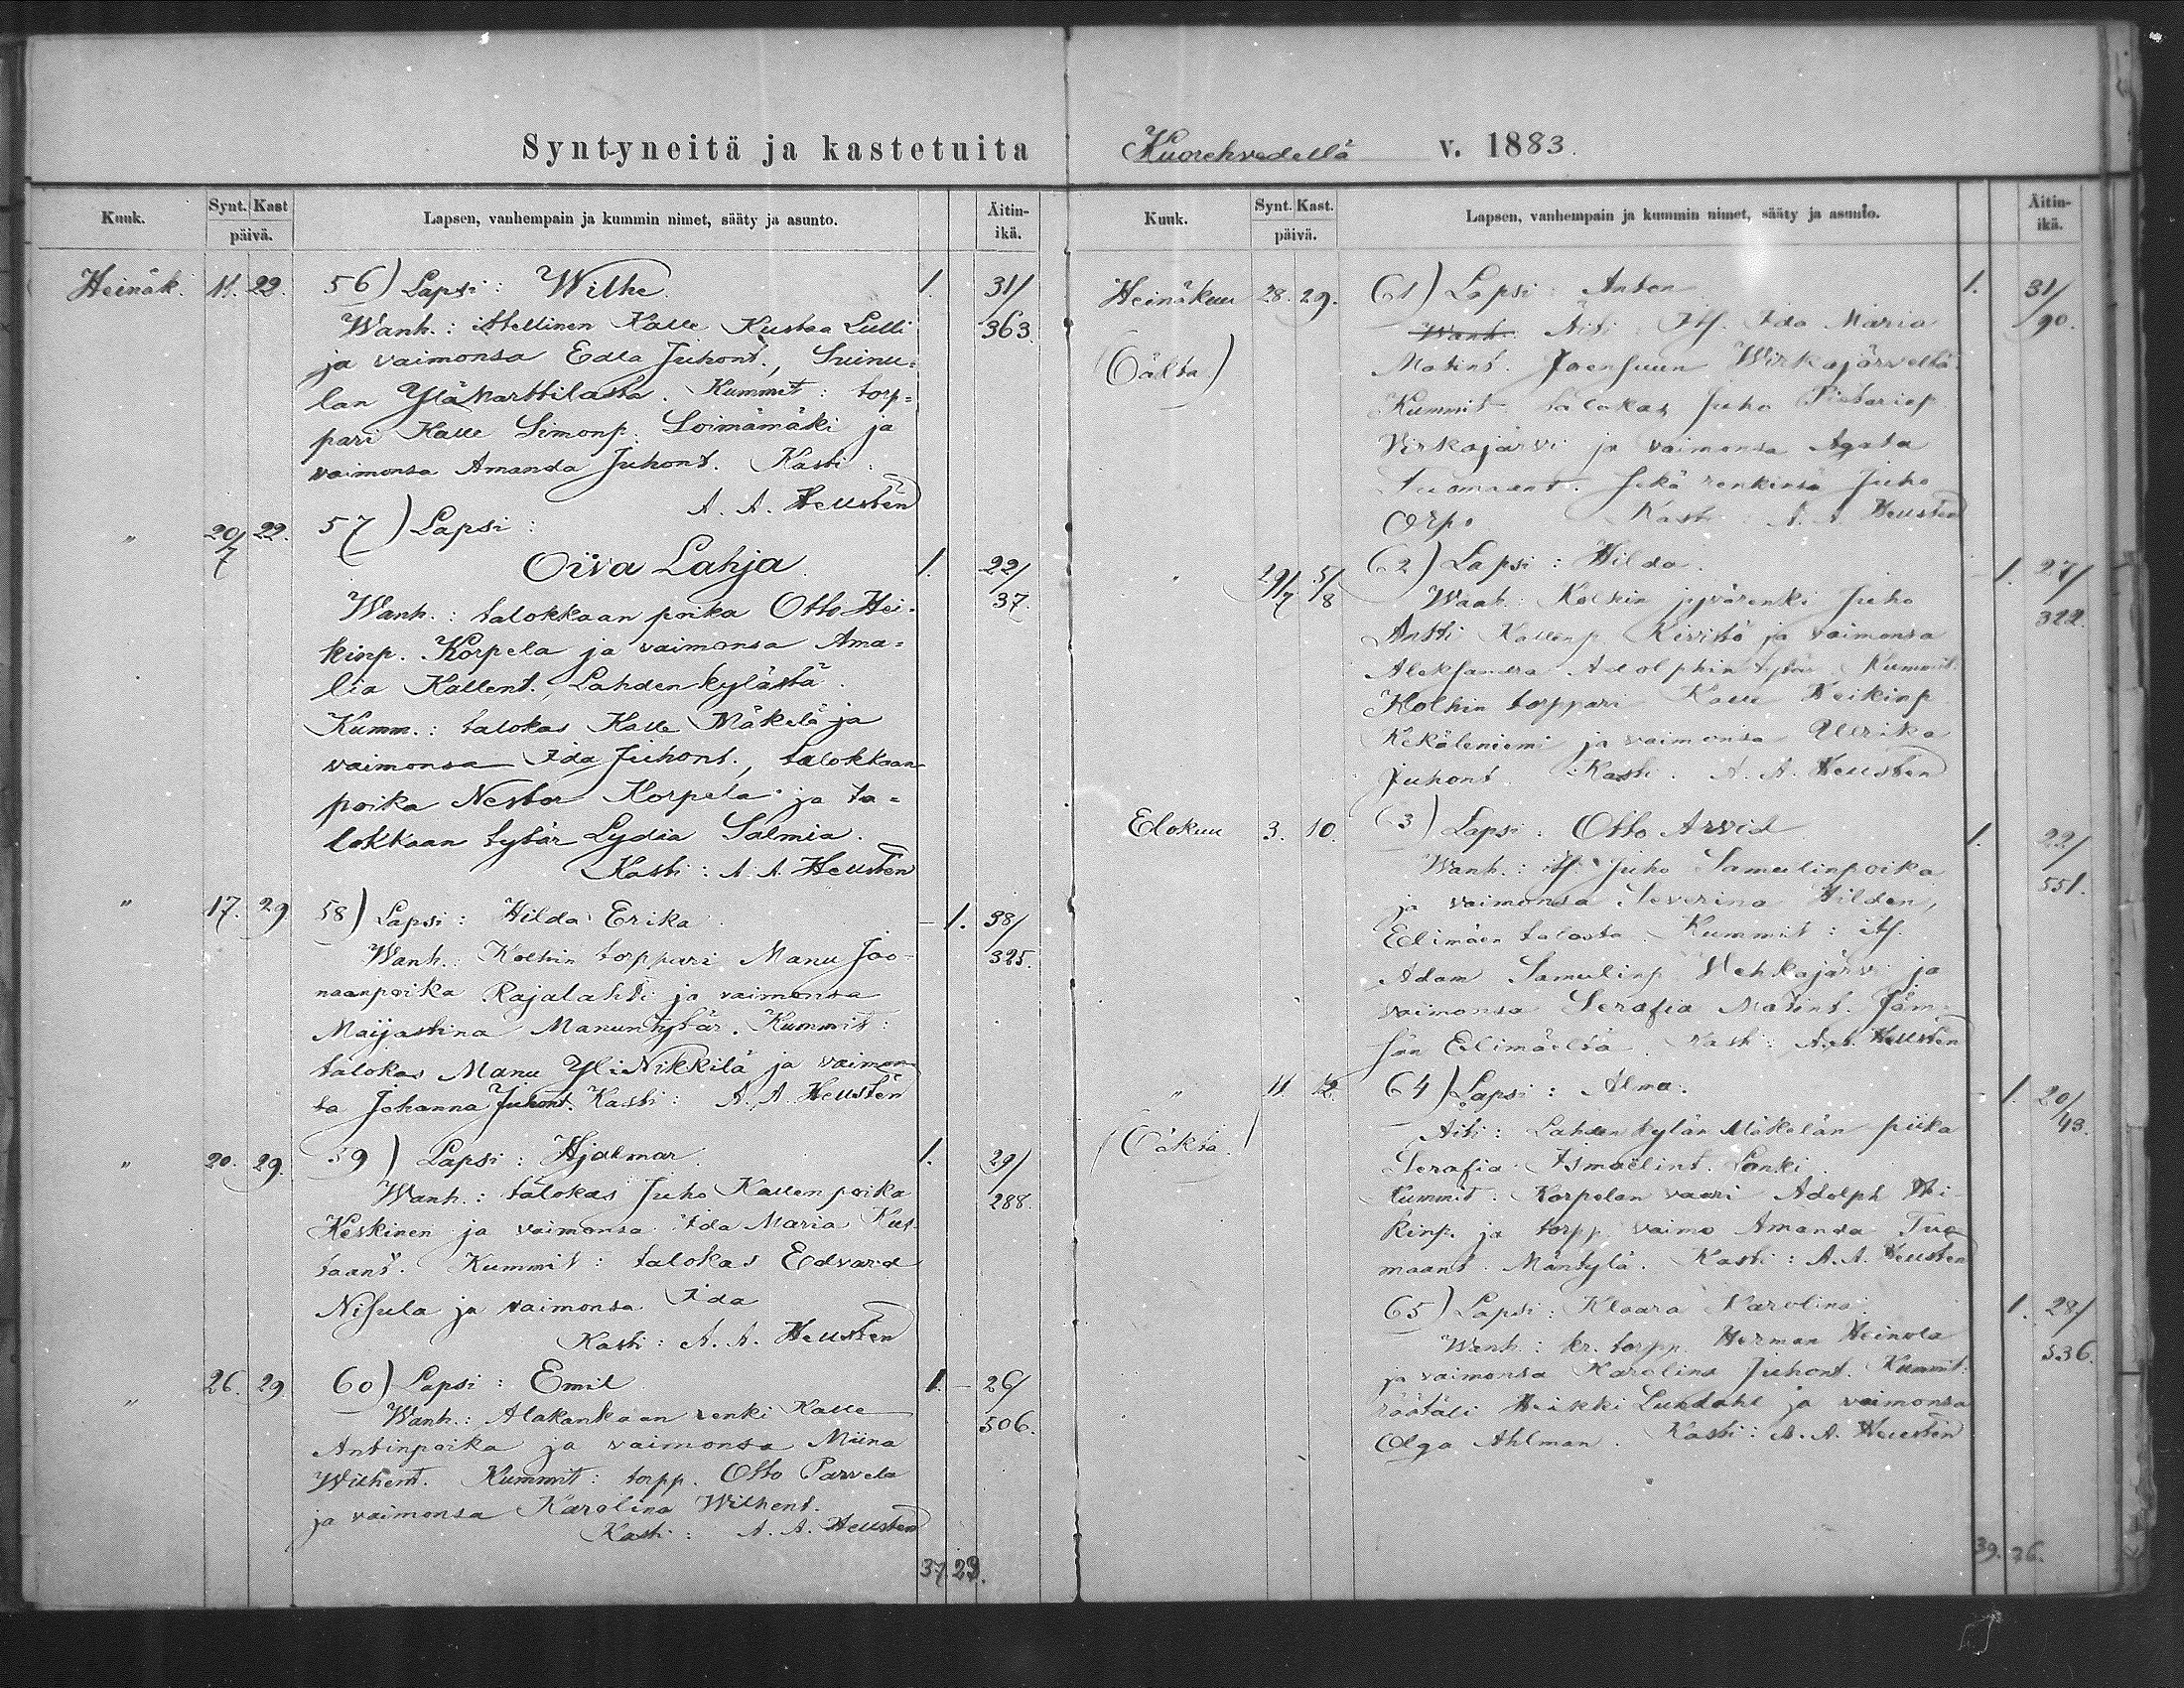 Syntyneitä ja kastetuita
Kuuk.
Synt. Kast
päivä.
Lapsen, vanhempain ja kummin nimet, sääty ja asunto.
Äitin-
ikä.
Heinäk. 11. 22. 56) Lapsi: Wilhe. 1. 31/
Wanh.: itsellinen Kalle Kustaa Lulli 363.
ja vaimonsa Edla Juhont., Suinu=
lan Yläkarttilasta. Kummit: torp=
pari Kalle Simonp. Loimämäki ja
vaimonsa Amanda Juhont. Kasti:
A. A. Hellsten
" 20/7 22. 57) Lapsi:
Oiva Lahja. 1. 22/
Wanh.: talokkaan poika Otto Hei- 37.
kinp. Korpela ja vaimonsa Ama=
lia Kallent., Lahdenkylästä.
Kumm.: talokas Kalle Mäkelä ja
vaimonsa Ida Juhont., talokkaan
poika Nestor Korpela ja ta=
lokkaan tytär Lydia Salmia.
Kasti: A. A. Hellsten
" 17. 29 58) Lapsi: Hilda Erika. - 1. 38/
Wanh.: Kolhin torppari Manu Joo- 325.
naanpoika Rajalahti ja vaimonsa
Maijastina Manuntytär. Kummit:
talokas Manu YliNikkilä ja vaimon-
sa Johanna Juhont. Kasti: A. A. Hellsten
" 20. 29. 59) Lapsi: Hjalmar. 1. 29/
Wanh.: talokas Juho Kallenpoika 288.
Keskinen ja vaimonsa Ida Maria Kus-
taant. Kummit: talokas Edvard
Nisula ja vaimonsa Ida
Kasti: A. A. Hellsten
" 26. 29 60) Lapsi: Emil 1. - 26/
Wanh.: Alakankaan renki Kalle 506.
Antinpoika ja vaimonsa Miina
Wilhent. Kummit: torpp. Otto Parvela
ja vaimonsa Karolina Wilhent.
Kasti: A. A. Hellsten
37. 23.
Kuorehvedellä v. 1883.
Kuuk.
Synt. Kast.
päivä.
Lapsen, vanhempain ja kummin nimet, sääty ja asunto.
Äitin-
ikä.
Heinäkuu 28. 29. 61) Lapsi: Anton 1. 31/
Wanh. Äiti: Its. Ida Maria 90.
(Äältä) Matint. Joensuun Wirkajärveltä.
Kummit talokas Juho Pietarinp
Virkajärvi ja vaimonsa Agata
Tuomaant. sekä renkinsä Juho
Orpo. Kasti: A. A. Hellsten
" 29/7 5/8 62) Lapsi: Hilda. - 1. 27/
Wanh. Kolhin Juho 322.
Antti Kallenp. Kivistö ja vaimonsa
Aleksandra Adolphin tytär. Kummit:
Kolhin torppari Kalle Heikinp
Kekäleniemi ja vaimonsa Ullrika
Juhont. Kasti. A. A. Hellsten
Elokuu 3. 10. 63) Lapsi: Otto Arvid 1. 22/
Wanh.: its. Juho Samulinpoika 551.
ja vaimonsa Severina Hilden,
Edimäen talosta. Kummit: its.
Adam Samulinp. Vehkajärvi ja
vaimonsa Serafia Matint. Jäm-
sän Edimäeltä. Kasti: A. A. Hellsten
" 11. 12. 64) Lapsi: Alma. - 1. 20/
Äiti: Lahdenkylän Mäkelän piika 43.
Serafia Ismaelint. Lanki.
Kummit: Korpelan vaari Adolph Hei-
kinp. ja torpp. vaimo Amanda Tuo-
maant. Mäntylä. Kasti: A. A. Hellsten
65) Lapsi: Klaara Karolina. 1. 28/
Wanh.: kr. torpp. Herman Heinola 536.
ja vaimonsa Karolina Juhont. Kummit:
räätäli Heikki Lundahl ja vaimonsa
Olga Ahlman. Kasti: A. A. Hellsten
39. 26.